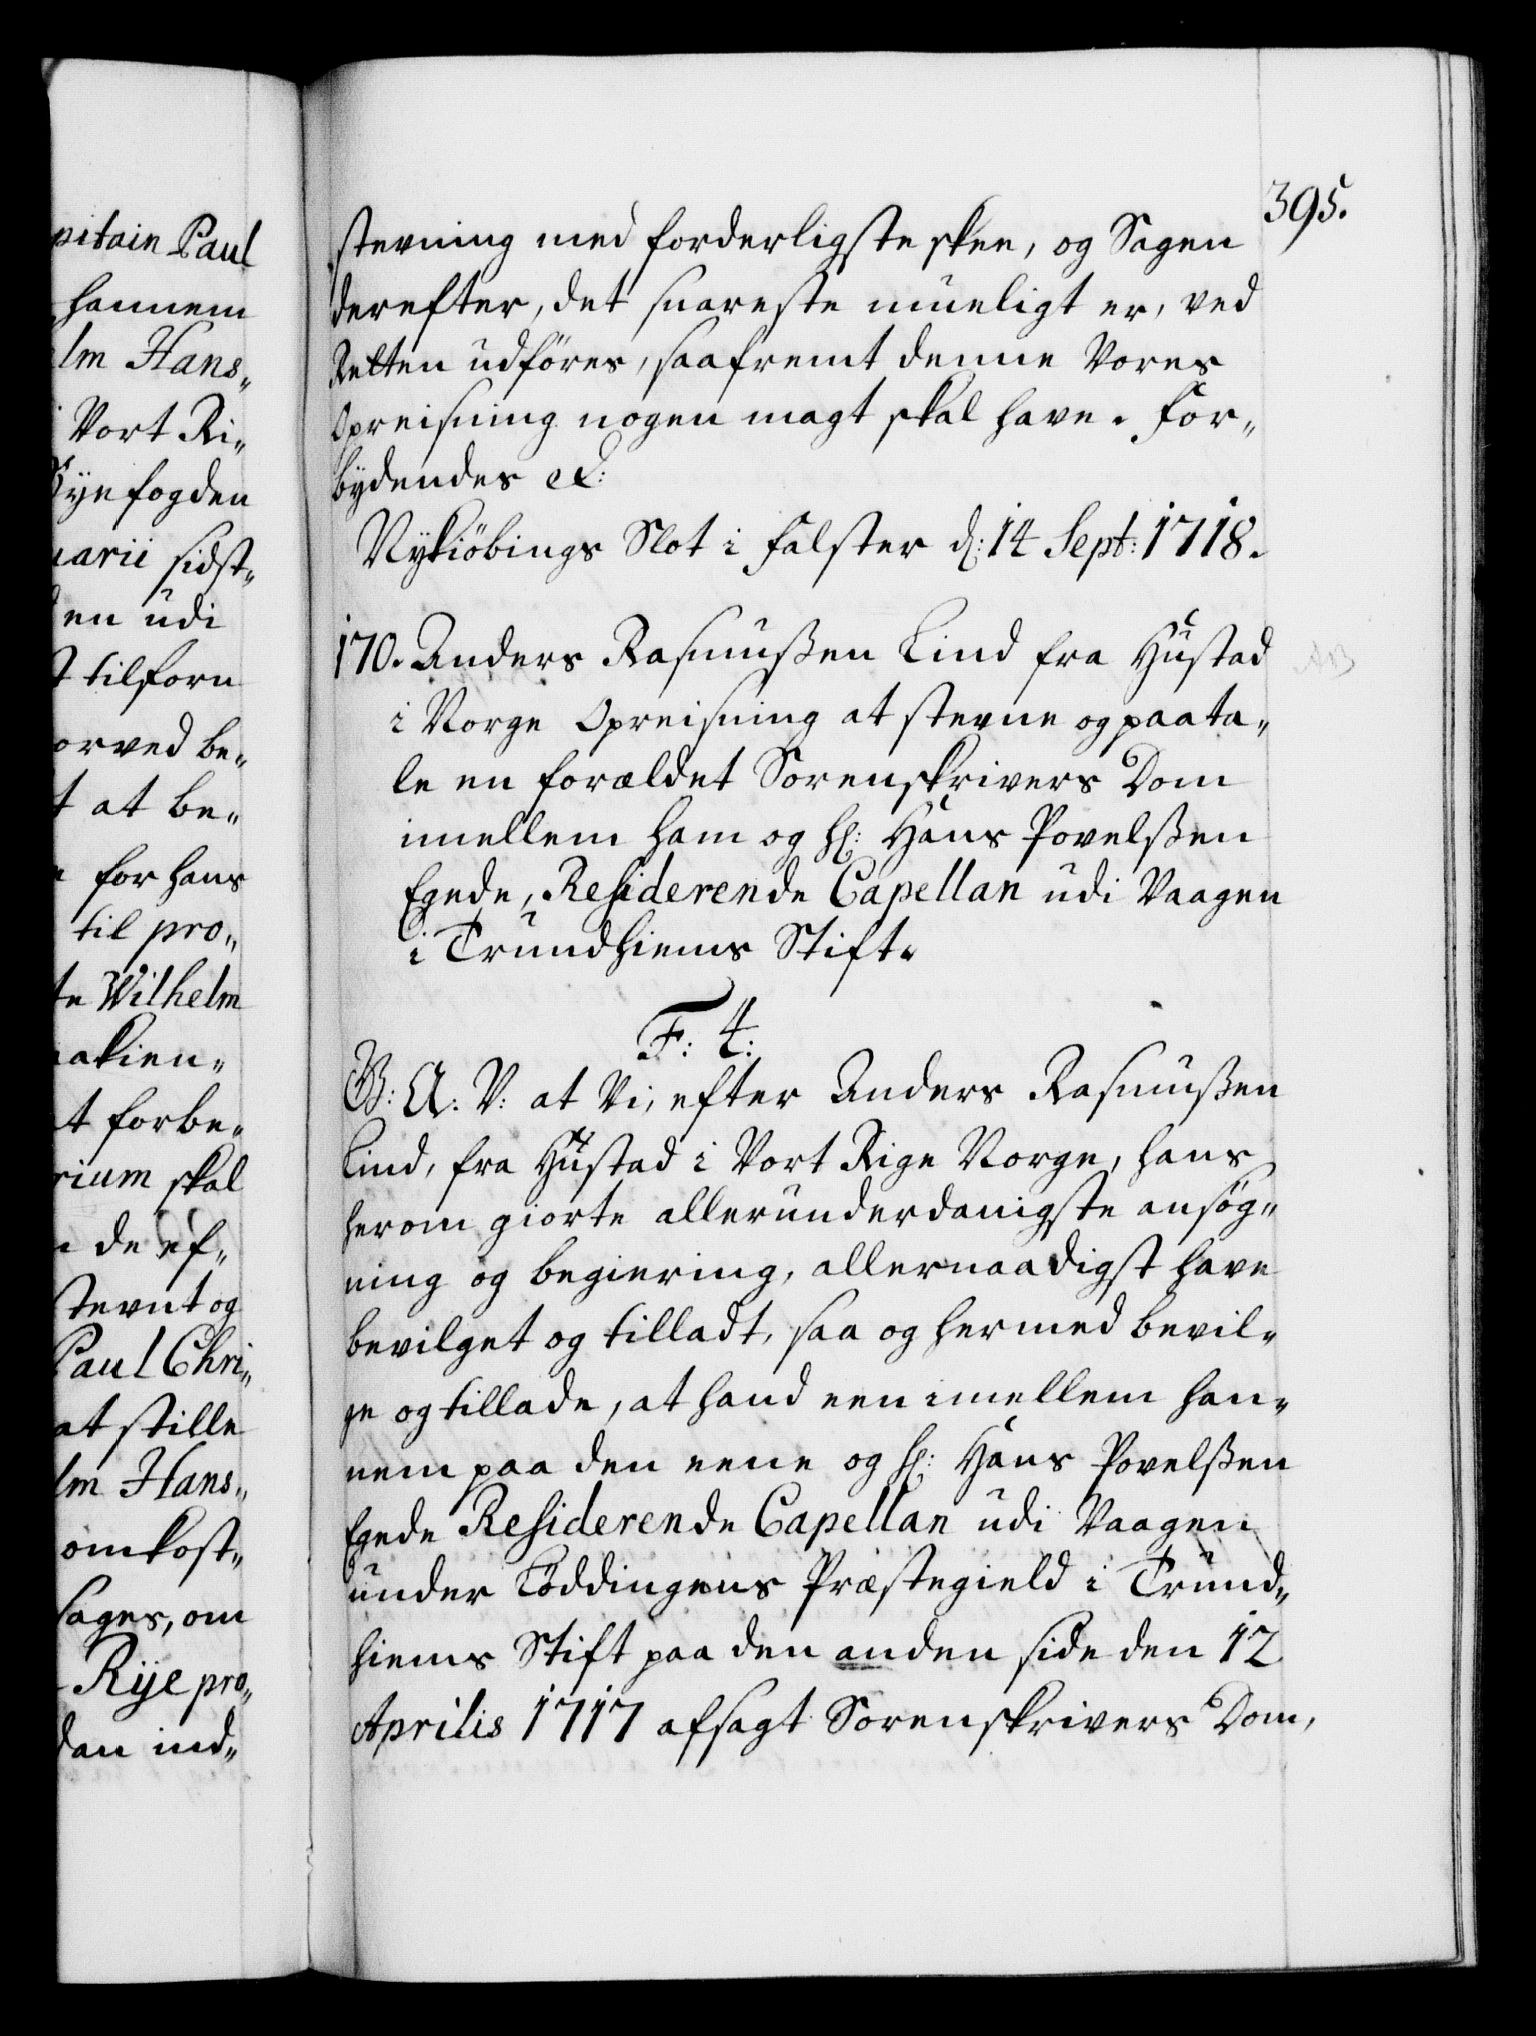 395.
stevning med forderligste skee, og Sagen
derefter, det snareste mueligt er, ved
Retten udföres, saafremt denne Vores
Opreisning nogen magt skal have. For„
bydendes &:
Nykiöbings Slot i Falster d: 14 Sept: 1718.
170. Anders Rasmußen Lind fra Hustad
i Norge Opreisning at stevne og paata„
le en forældet Sorenskrivers Dom
imellem ham og Hr: Hans Povelßen
Egede, Residerende Capellan udi Vaagen
i Trundhiems Stift.
F: 4:
G: A: V: at Vi, efter Anders Rasmußen
Lind, fra Hustad i Vort Rige Norge, hans
herom giorte allerunderdanigste ansøg„
ning og begiering, allernaadigst have
bevilget og tilladt, saa og hermed bevil„
ge og tillade, at hand een imellem han„
nem paa den eene og Hr: Hans Povelßen
Egede Residerende Capellan udi Vaagen
under Löddingens Præstegield i Trund„
hiems Stift paa den anden side den 12
Aprilis 1717 afsagt Sorenskrivers Dom,
pitain Paul
hannem
lm Hans„
Vort Ri„
Byefogden
uarii sidst„
en udi
t tilforn
orved be„
t at be„
for hans
til pro„
te Wilhelm
akien„
t forbe„
rium skal
de ef„
stevnt og
Paul Chri„
at stille
lm Hans„
omkost„
sages, om
Rije pro„
dan ind„